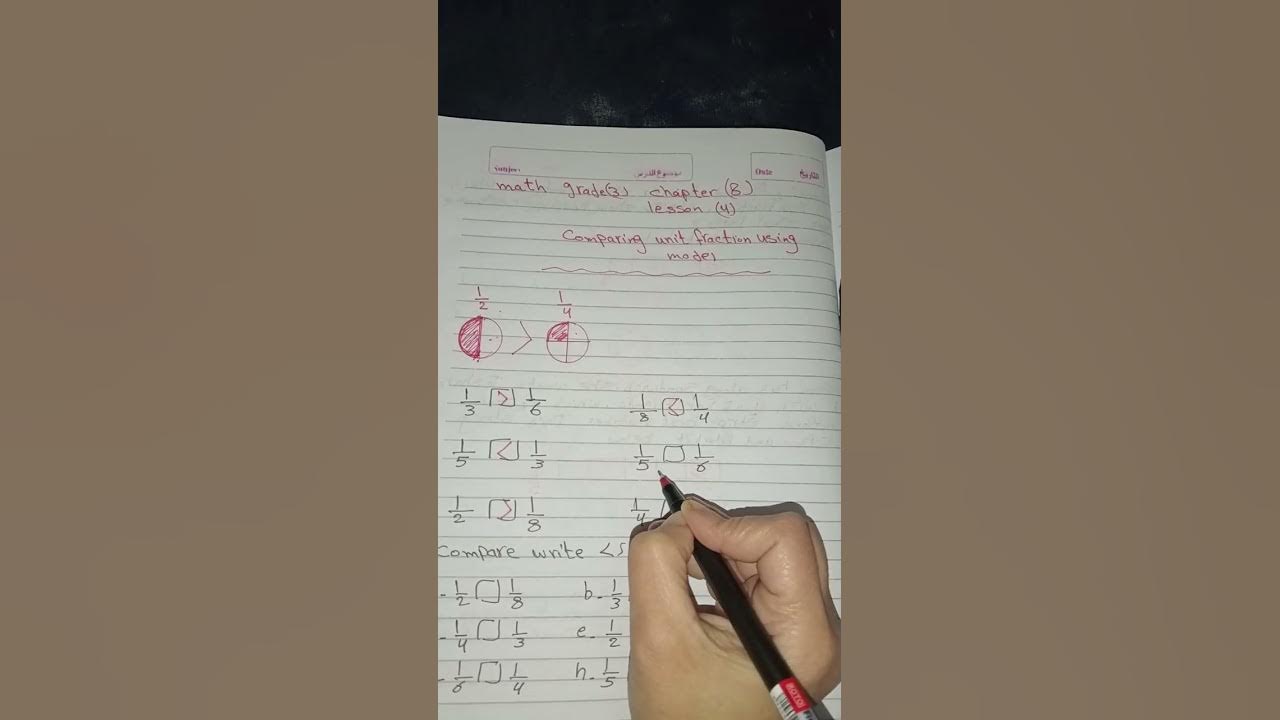 موضوع الدرس
Date
math grade(3) chapter (8)
lesson (4)
Comparing unit fraction using
model
1/2 > 1/4
1/3 > 1/6 1/8 < 1/4
1/5 < 1/3 1/5 □ 1/6
1/2 > 1/8 1/4
Compare write <
1/2 □ 1/8 b- 1/3
1/4 □ 1/3 e- 1/2
1/6 □ 1/4 h- 1/5
ROTO